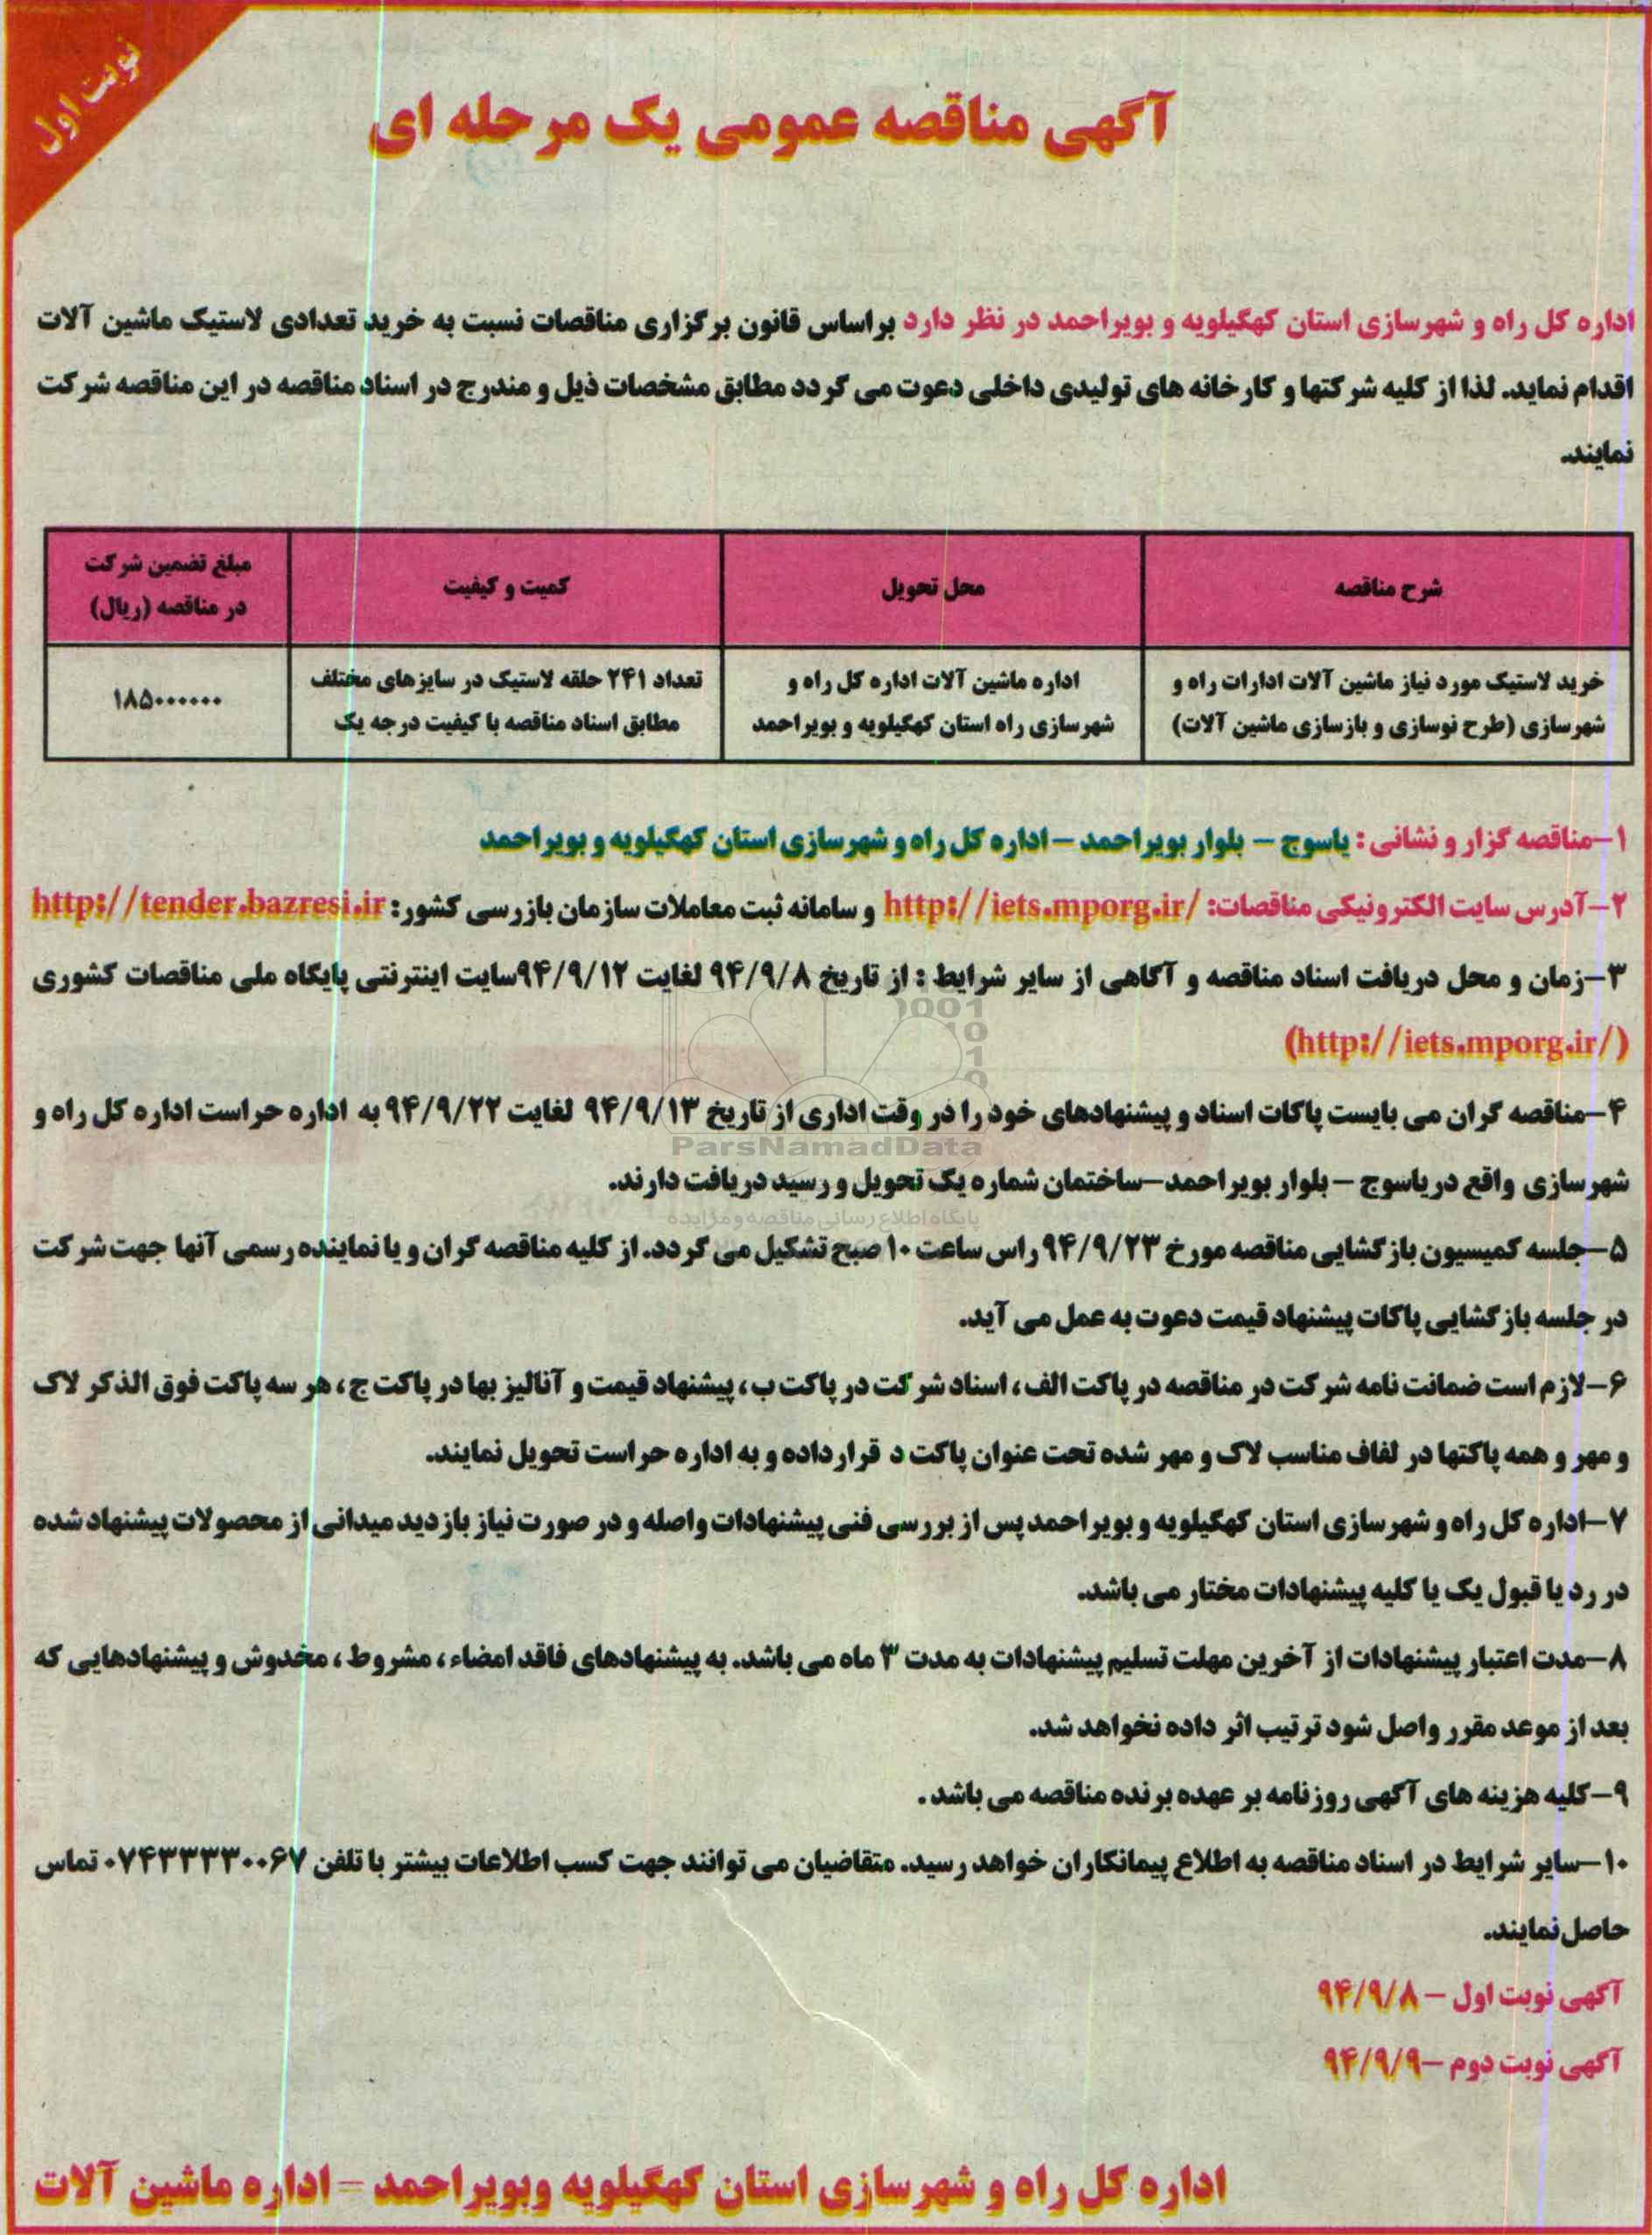 نوبت اول
آگهی مناقصه عمومی یک مرحله ای
اداره کل راه و شهرسازی استان کهگیلویه و بویراحمد در نظر دارد براساس قانون برگزاری مناقصات نسبت به خرید تعدادی لاستیک ماشین آلات
اقدام نماید. لذا از کلیه شرکتها و کارخانه های تولیدی داخلی دعوت می گردد مطابق مشخصات ذیل و مندرج در اسناد مناقصه در این مناقصه شرکت
نمایند.
شرح مناقصه
محل تحویل
کمیت و کیفیت
مبلغ تضمین شرکت
در مناقصه (ریال)
خرید لاستیک مورد نیاز ماشین آلات ادارات راه و
شهرسازی (طرح نوسازی و بازسازی ماشین آلات)
اداره ماشین آلات اداره کل راه و
شهرسازی راه استان کهگیلویه و بویراحمد
تعداد ۲۴۱ حلقه لاستیک در سایزهای مختلف
مطابق اسناد مناقصه با کیفیت درجه یک
۱۸۵۰۰۰۰۰۰
۱-مناقصه گزار و نشانی : یاسوج - بلوار بویراحمد - اداره کل راه و شهرسازی استان کهگیلویه و بویراحمد
۲-آدرس سایت الکترونیکی مناقصات: http://iets.mporg.ir/ و سامانه ثبت معاملات سازمان بازرسی کشور: http://tender.bazresi.ir
۳-زمان و محل دریافت اسناد مناقصه و آگاهی از سایر شرایط : از تاریخ ۹۴/۹/۸ لغایت ۹۴/۹/۱۲سایت اینترنتی پایگاه ملی مناقصات کشوری
(http://iets.mporg.ir/)
۴-مناقصه گران می بایست پاکات اسناد و پیشنهادهای خود را در وقت اداری از تاریخ ۹۴/۹/۱۳ لغایت ۹۴/۹/۲۲ به اداره حراست اداره کل راه و
ParsNamadData
شهرسازی واقع در یاسوج - بلوار بویراحمد-ساختمان شماره یک تحویل و رسید دریافت دارند.
پایگاه اطلاع رسانی مناقصه و مزایده
۵-جلسه کمیسیون بازگشایی مناقصه مورخ ۹۴/۹/۲۳ راس ساعت ۱۰ صبح تشکیل می گردد. از کلیه مناقصه گران و یا نماینده رسمی آنها جهت شرکت
در جلسه بازگشایی پاکات پیشنهاد قیمت دعوت به عمل می آید.
۶-لازم است ضمانت نامه شرکت در مناقصه در پاکت الف ، اسناد شرکت در پاکت ب ، پیشنهاد قیمت و آنالیز بها در پاکت ج ، هر سه پاکت فوق الذکر لاک
و مهر و همه پاکتها در لفاف مناسب لاک و مهر شده تحت عنوان پاکت د قرار داده و به اداره حراست تحویل نمایند.
۷-اداره کل راه و شهرسازی استان کهگیلویه و بویراحمد پس از بررسی فنی پیشنهادات واصله و در صورت نیاز بازدید میدانی از محصولات پیشنهاد شده
در رد یا قبول یک یا کلیه پیشنهادات مختار می باشد.
۸-مدت اعتبار پیشنهادات از آخرین مهلت تسلیم پیشنهادات به مدت ۳ ماه می باشد. به پیشنهادهای فاقد امضاء ، مشروط ، مخدوش و پیشنهادهایی که
بعد از موعد مقرر واصل شود ترتیب اثر داده نخواهد شد.
۹-کلیه هزینه های آگهی روزنامه بر عهده برنده مناقصه می باشد .
۱۰-سایر شرایط در اسناد مناقصه به اطلاع پیمانکاران خواهد رسید. متقاضیان می توانند جهت کسب اطلاعات بیشتر با تلفن ۰۷۴۳۳۳۳۰۰۶۷ تماس
حاصل نمایند.
آگهی نوبت اول - ۹۴/۹/۸
آگهی نوبت دوم -۹۴/۹/۹
اداره کل راه و شهرسازی استان کهگیلویه وبویراحمد - اداره ماشین آلات